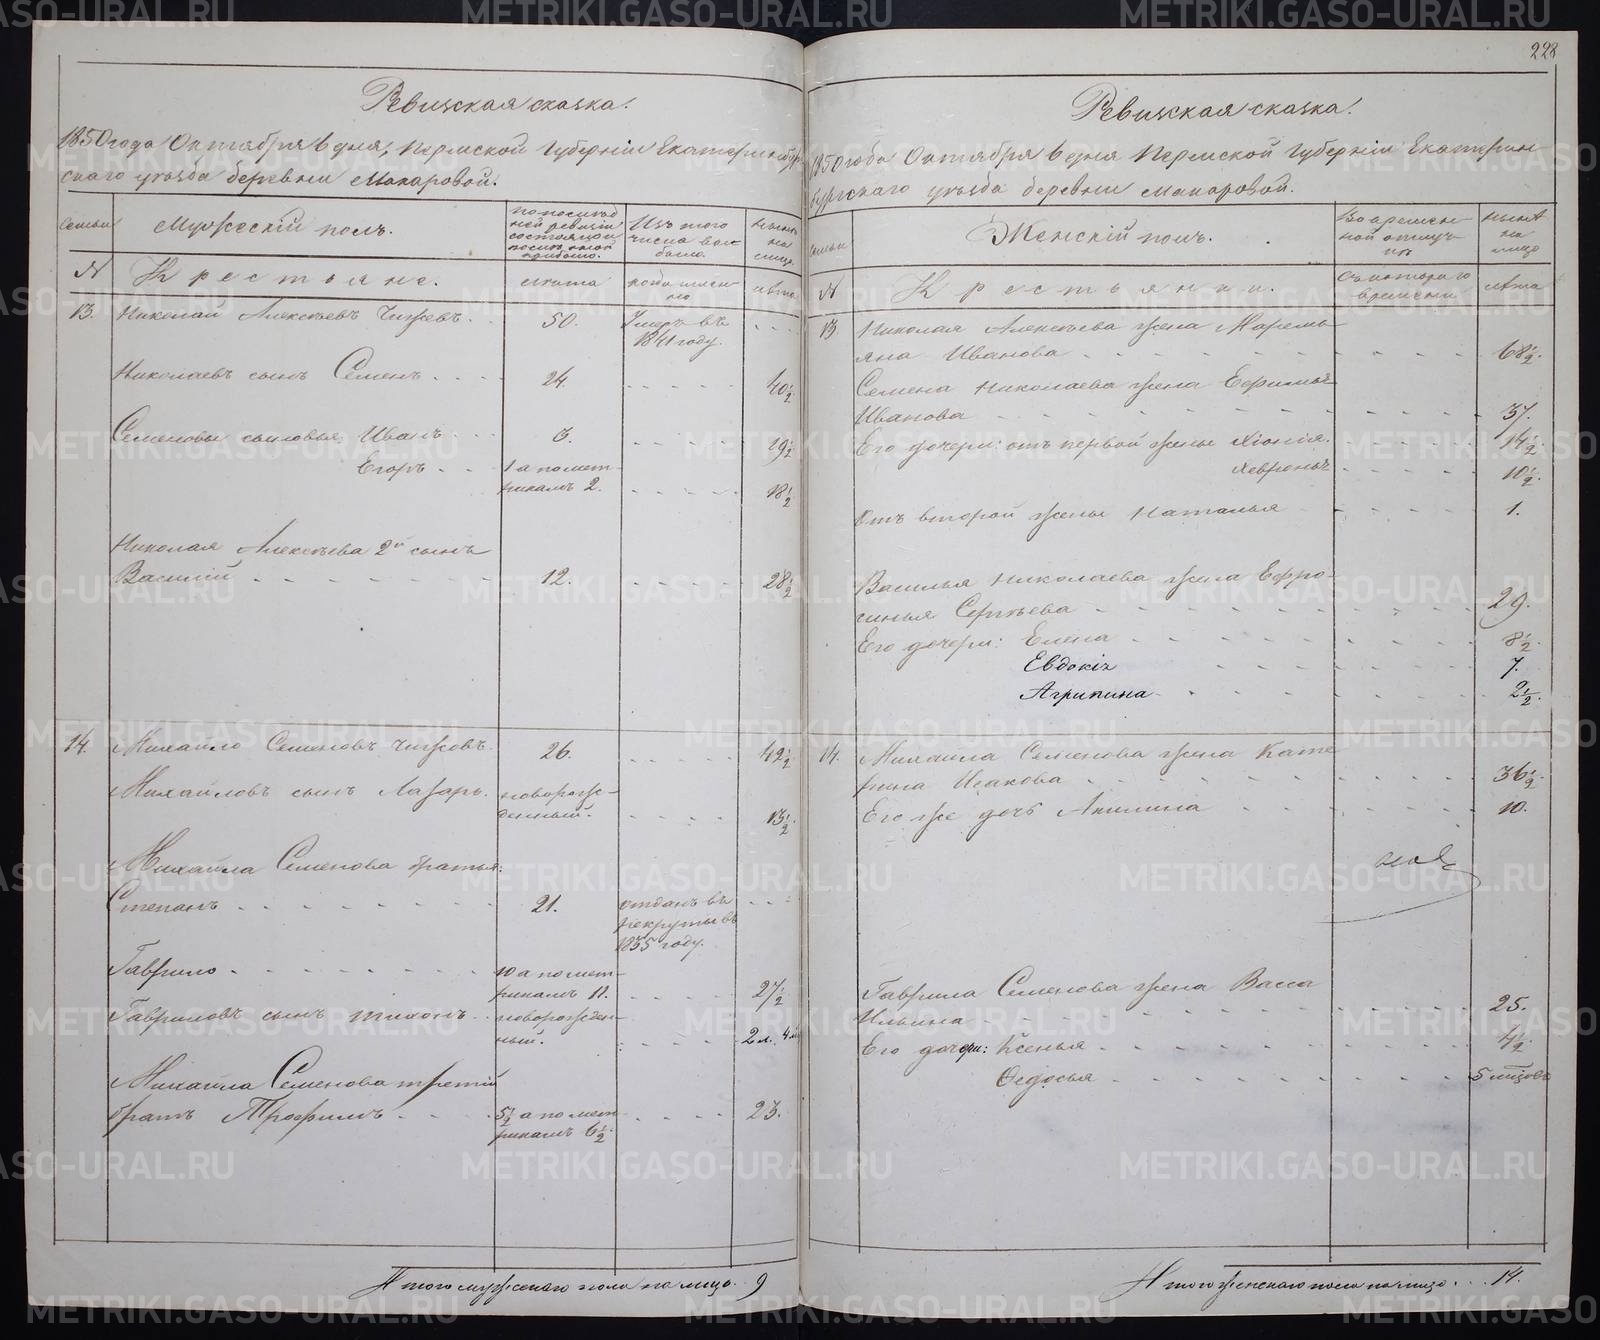 228
Ревизская сказка.
1850 года Октября 6 дня, Пермской Губернiи Екатеринбур-
скаго уѣзда деревни Макаровой.
семьи
Мужескiй полъ.
по послѣд-
ней ревизiи
состояло и
послѣ оной
прибыло.
Изъ того
числа вы-
было.
нынѣ
на
лицо.
№
Крестьяне.
лѣта
когда имен-
но
лѣта
13. Николай Алексѣевъ Чижовъ. 50. Умеръ въ
1841 году.
Николаевъ сынъ Семенъ. 24. 40 1/2
Семеновы сыновья: Иванъ. 3. 19 1/2
Егоръ. 1 а по мет-
рикамъ 2. 18 1/2
Николая Алексѣева 2й сынъ
Василiй 12. 28 1/2
14. Михайло Семеновъ Чижовъ. 26. 42 1/2
Михайловъ сынъ Лазарь. новорож-
денный. 13 1/2
Михайла Семенова братья:
Степанъ 21. отданъ въ
рекруты въ
1855 году.
Гаврило 10 а по мет-
рикамъ 11. 27 1/2
Гавриловъ сынъ Тихонъ. новорожден-
ный. 2 л. 4 м
Михайла Семенова третiй
братъ Трофимъ 5 1/2 а по мет-
рикамъ 6 1/2. 23.
Итого мужескаго пола на лицо. 9
Ревизская сказка.
1850 года Октября 6 дня Пермской Губернiи Екатерин-
бургскаго уѣзда деревни Макаровой.
семьи
Женскiй полъ.
Во времен-
ной отлуч-
кѣ
нынѣ
на
лицо
№
Крестьянки.
Съ котораго
времени
лѣта
13. Николая Алексѣева жена Маремь-
яна Иванова 68 1/2.
Семена Николаева жена Ефимья
Иванова 37.
Его дочери: отъ первой жены Хiонiя. 14 1/2.
Хевронья 10 1/2.
Отъ второй жены Наталья 1.
Василья Николаева жена Ефро-
синья Сергѣева 29.
Его дочери: Елена 8 1/2.
Евдокiя 7.
Агрипина 2 1/2.
14. Михаила Семенова жена Кате-
рина Исакова 36 1/2.
Его же дочь Акилина 10.
Гаврила Семенова жена Васса
Ильина 25.
Его дочери: Ксенья 4 1/2.
Федосья 5 мѣсяцовъ
Итого женскаго пола на лицо 14.
METRIKI.GASO-URAL.RU